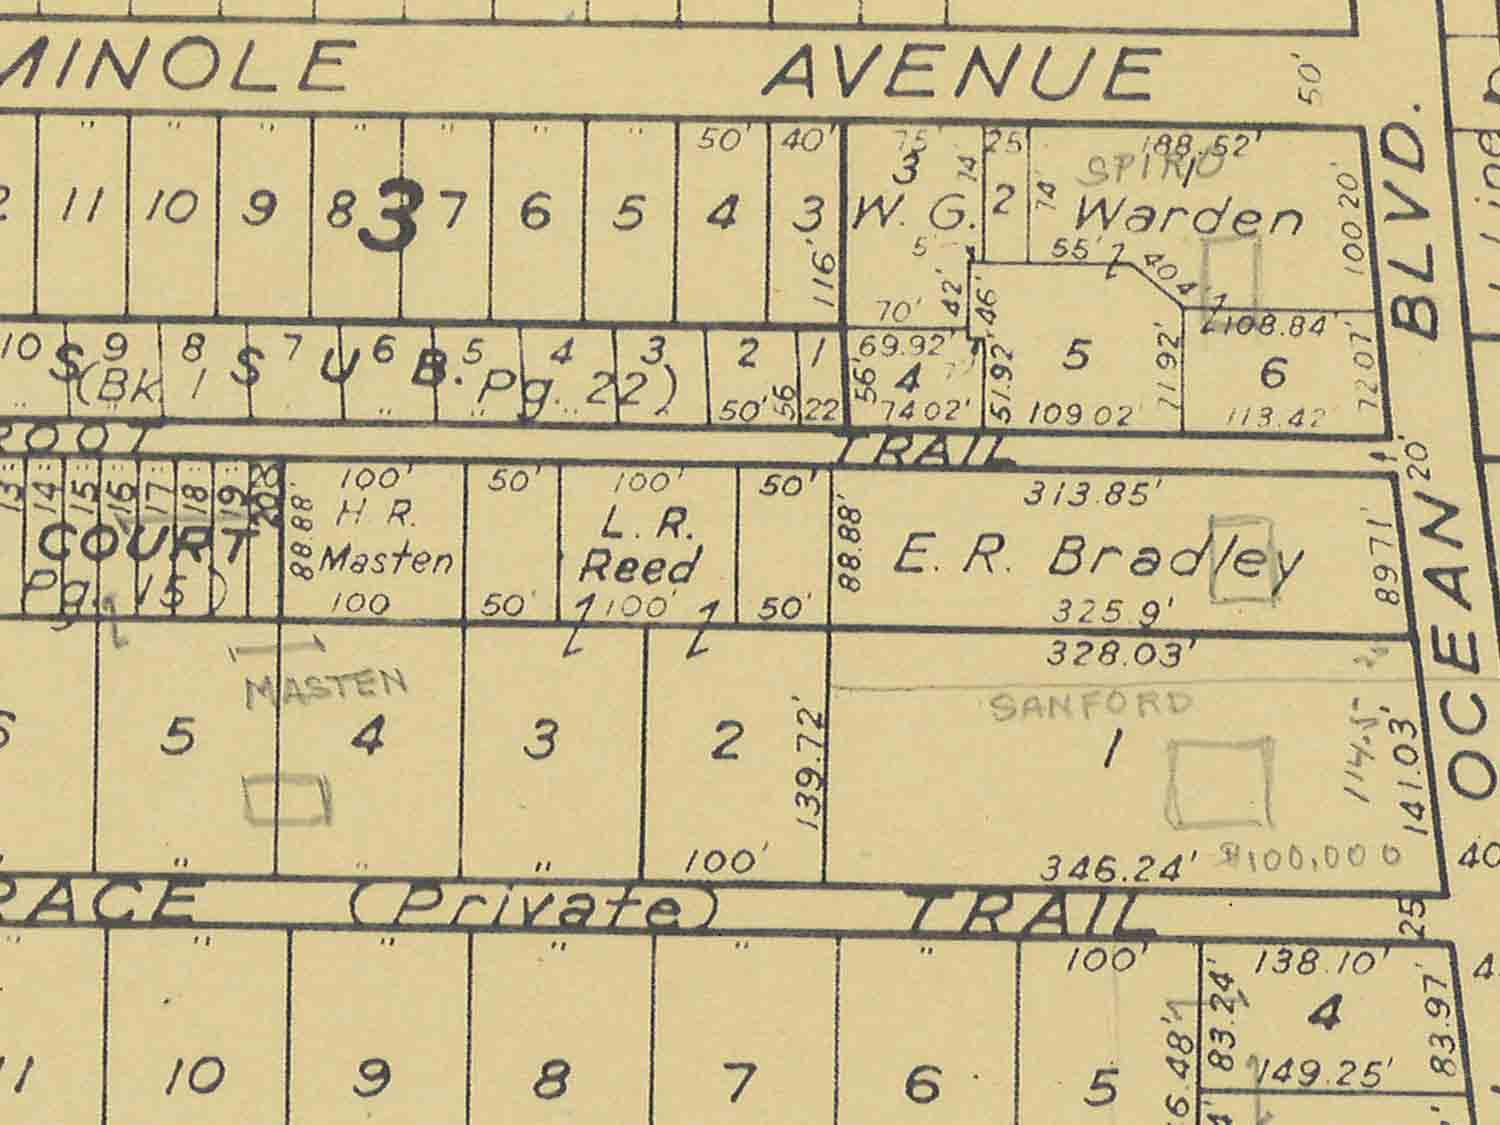 MINOLE AVENUE
50'
BLVD.
" " " " " " " 50' 40' 75' 25' 188.52'
3 SPIRO 1
11 10 9 8 3 7 6 5 4 3 W. G. 2 Warden
116' 74 74' 100.20'
5' 55' 40.4'
70' 42' 46'
10 9 8 7 6 5 4 3 2 1 69.92' 5 108.84'
S SUB. 4 6
(Bk. 1 Pg. 22)
50' 56 22 56' 74.02' 51.92' 109.02' 71.92' 113.42' 72.07'
ROOT TRAIL
20'
13 14 15 16 17 18 19 20
100' 50' 100' 50' 313.85'
88.88' H. R. L. R. 88.88' 89.71'
COURT Masten Reed E. R. Bradley
Pg. 15)
100 50' 100' 50' 325.9'
328.03'
OCEAN
MASTEN SANFORD
5 4 3 2 1
139.72' 114.5' 141.03'
" " " 100' 346.24' $100,000 40
RACE (Private) TRAIL
25
" " " " " " 100' 138.10'
83.24' 4 83.97'
11 10 9 8 7 6 5 149.25'
6.48'